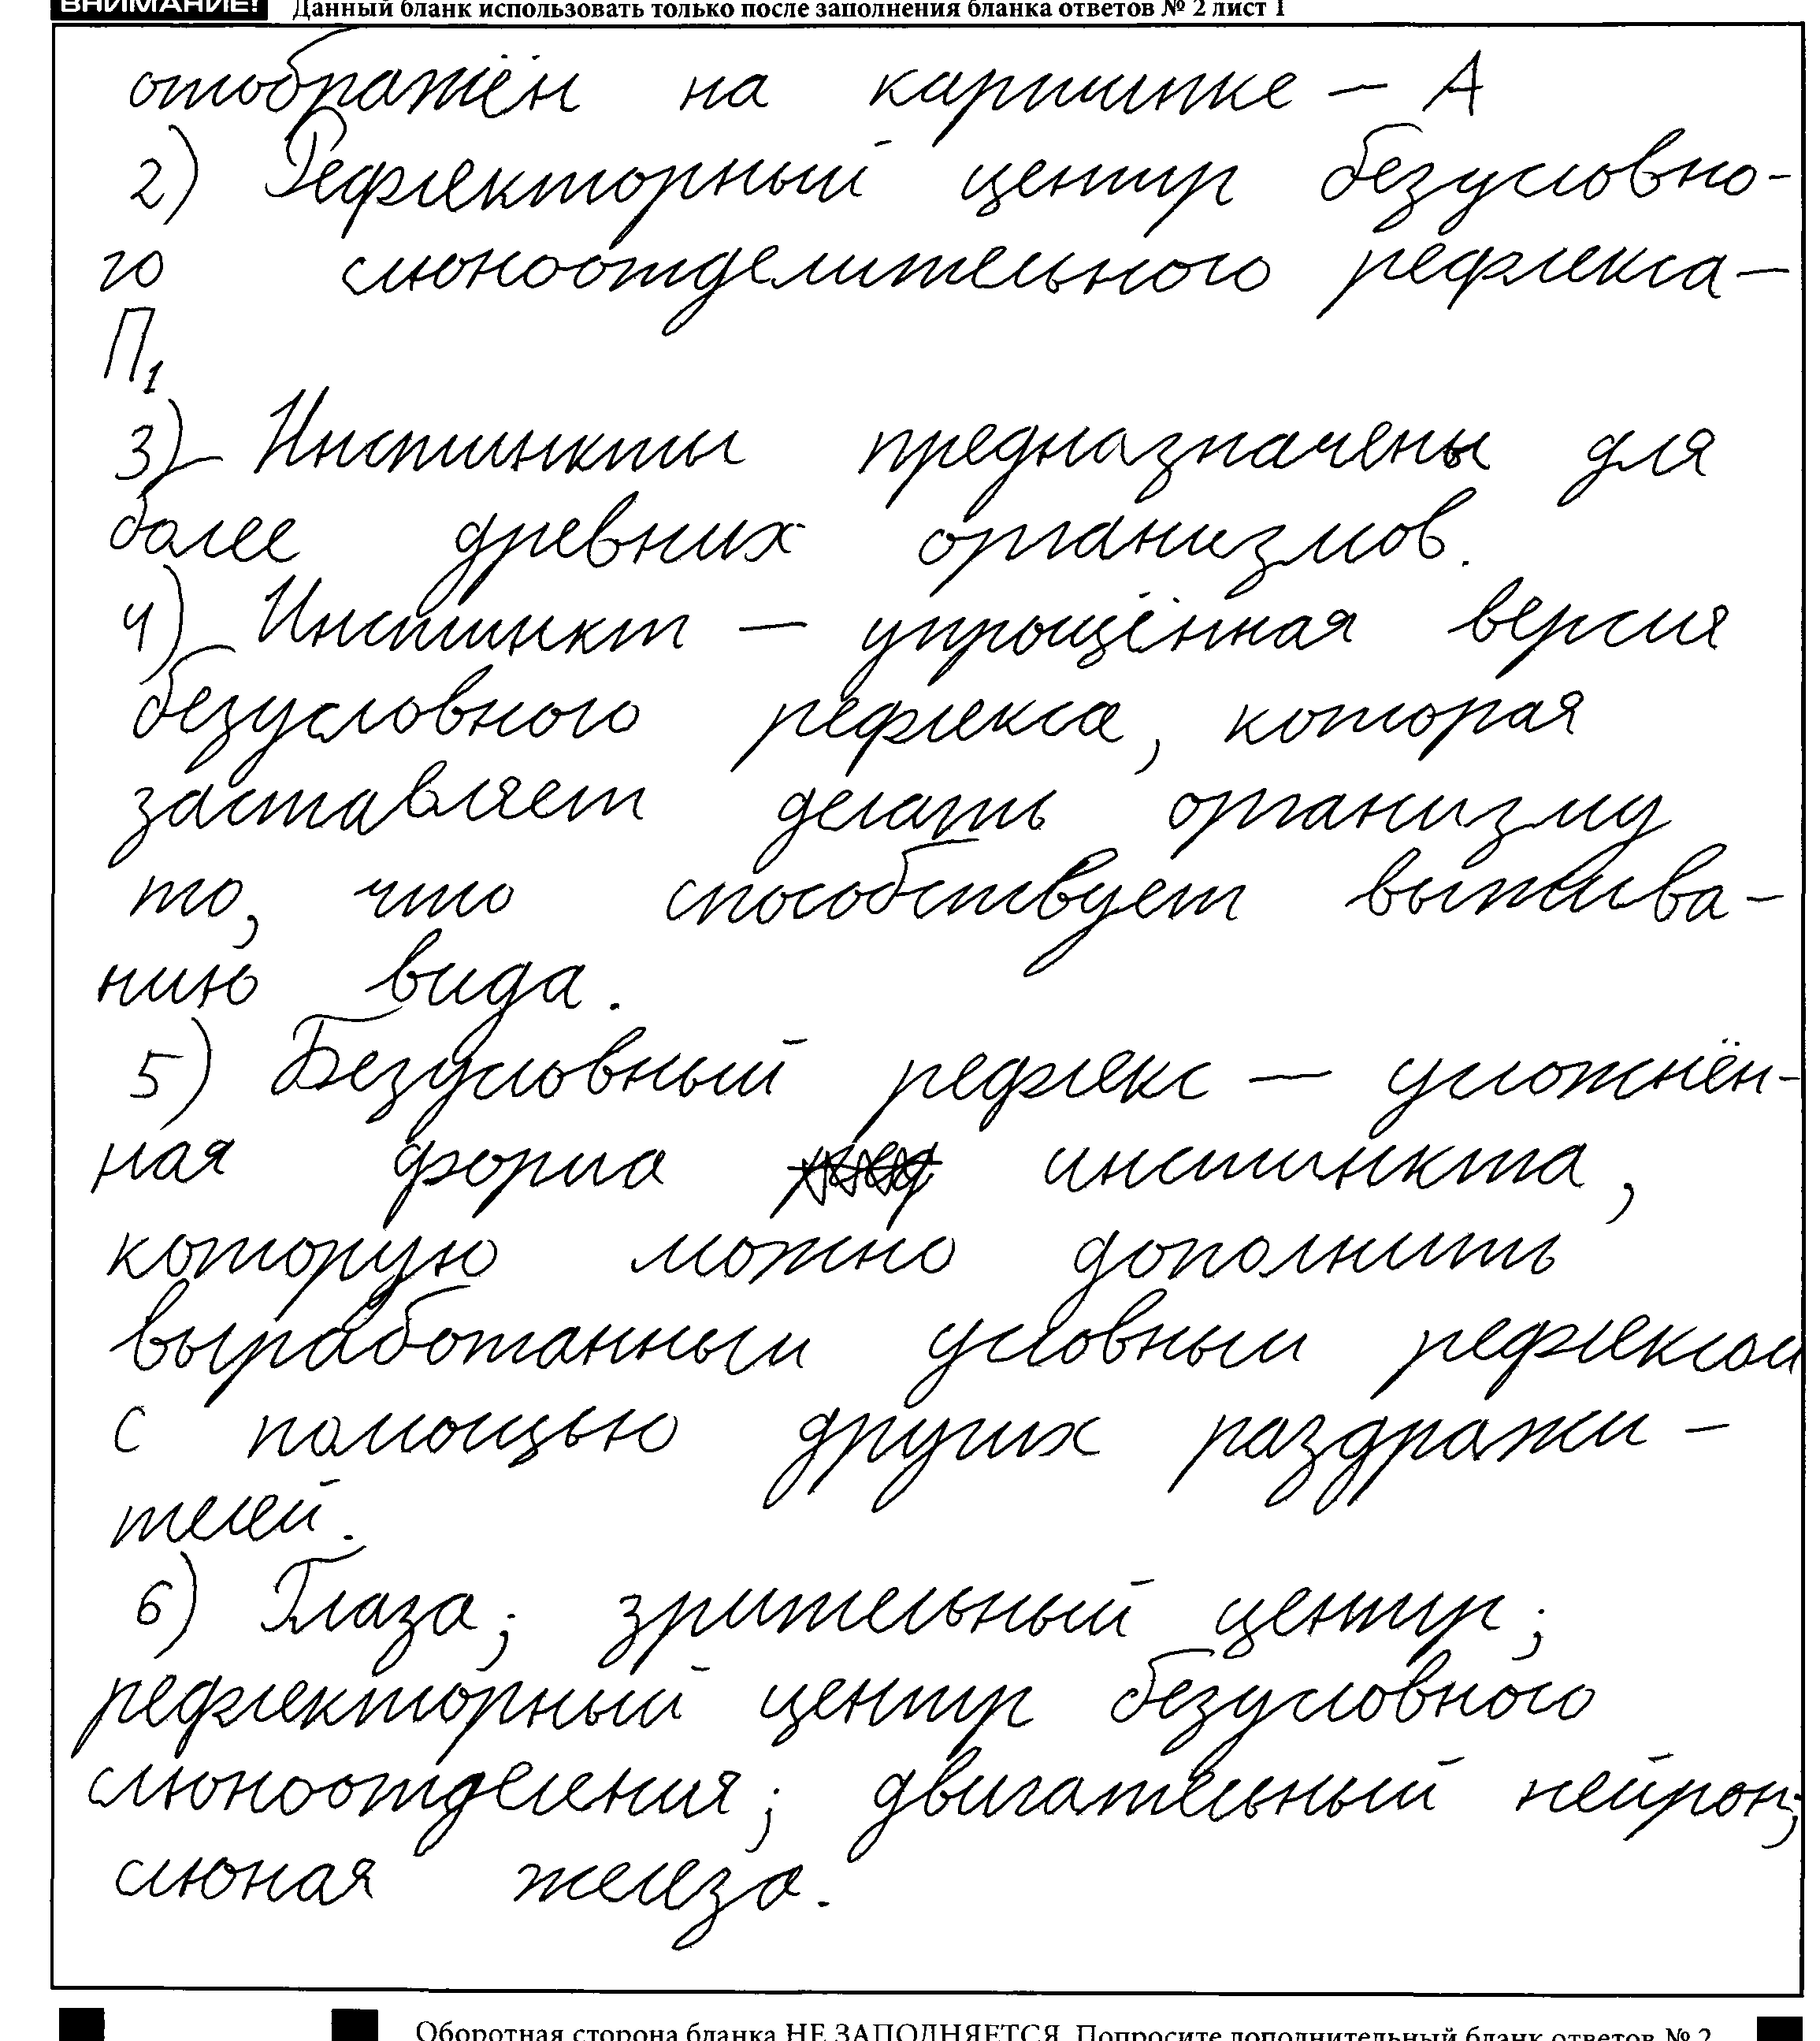 ВНИМАНИЕ! Данный бланк использовать только после заполнения бланка ответов № 2 лист 1
отображён на картинке – А
2) Рефлекторный центр безусловно-
го слюноотделительного рефлекса –
П1
3) Инстинкты предназначены для
более древних организмов.
4) Инстинкт – упрощённая версия
безусловного рефлекса, которая
заставляет делать организму
то, что способствует выжива-
нию вида.
5) Безусловный рефлекс – усложнён-
ная форма инстинкта,
которую можно дополнить
выработанным условным рефлексом
с помощью других раздражи-
телей.
6) Глаза; зрительный центр;
рефлекторный центр безусловного
слюноотделения; двигательный нейрон;
слюная железа.
Оборотная сторона бланка НЕ ЗАПОЛНЯЕТСЯ. Попросите дополнительный бланк ответов № 2